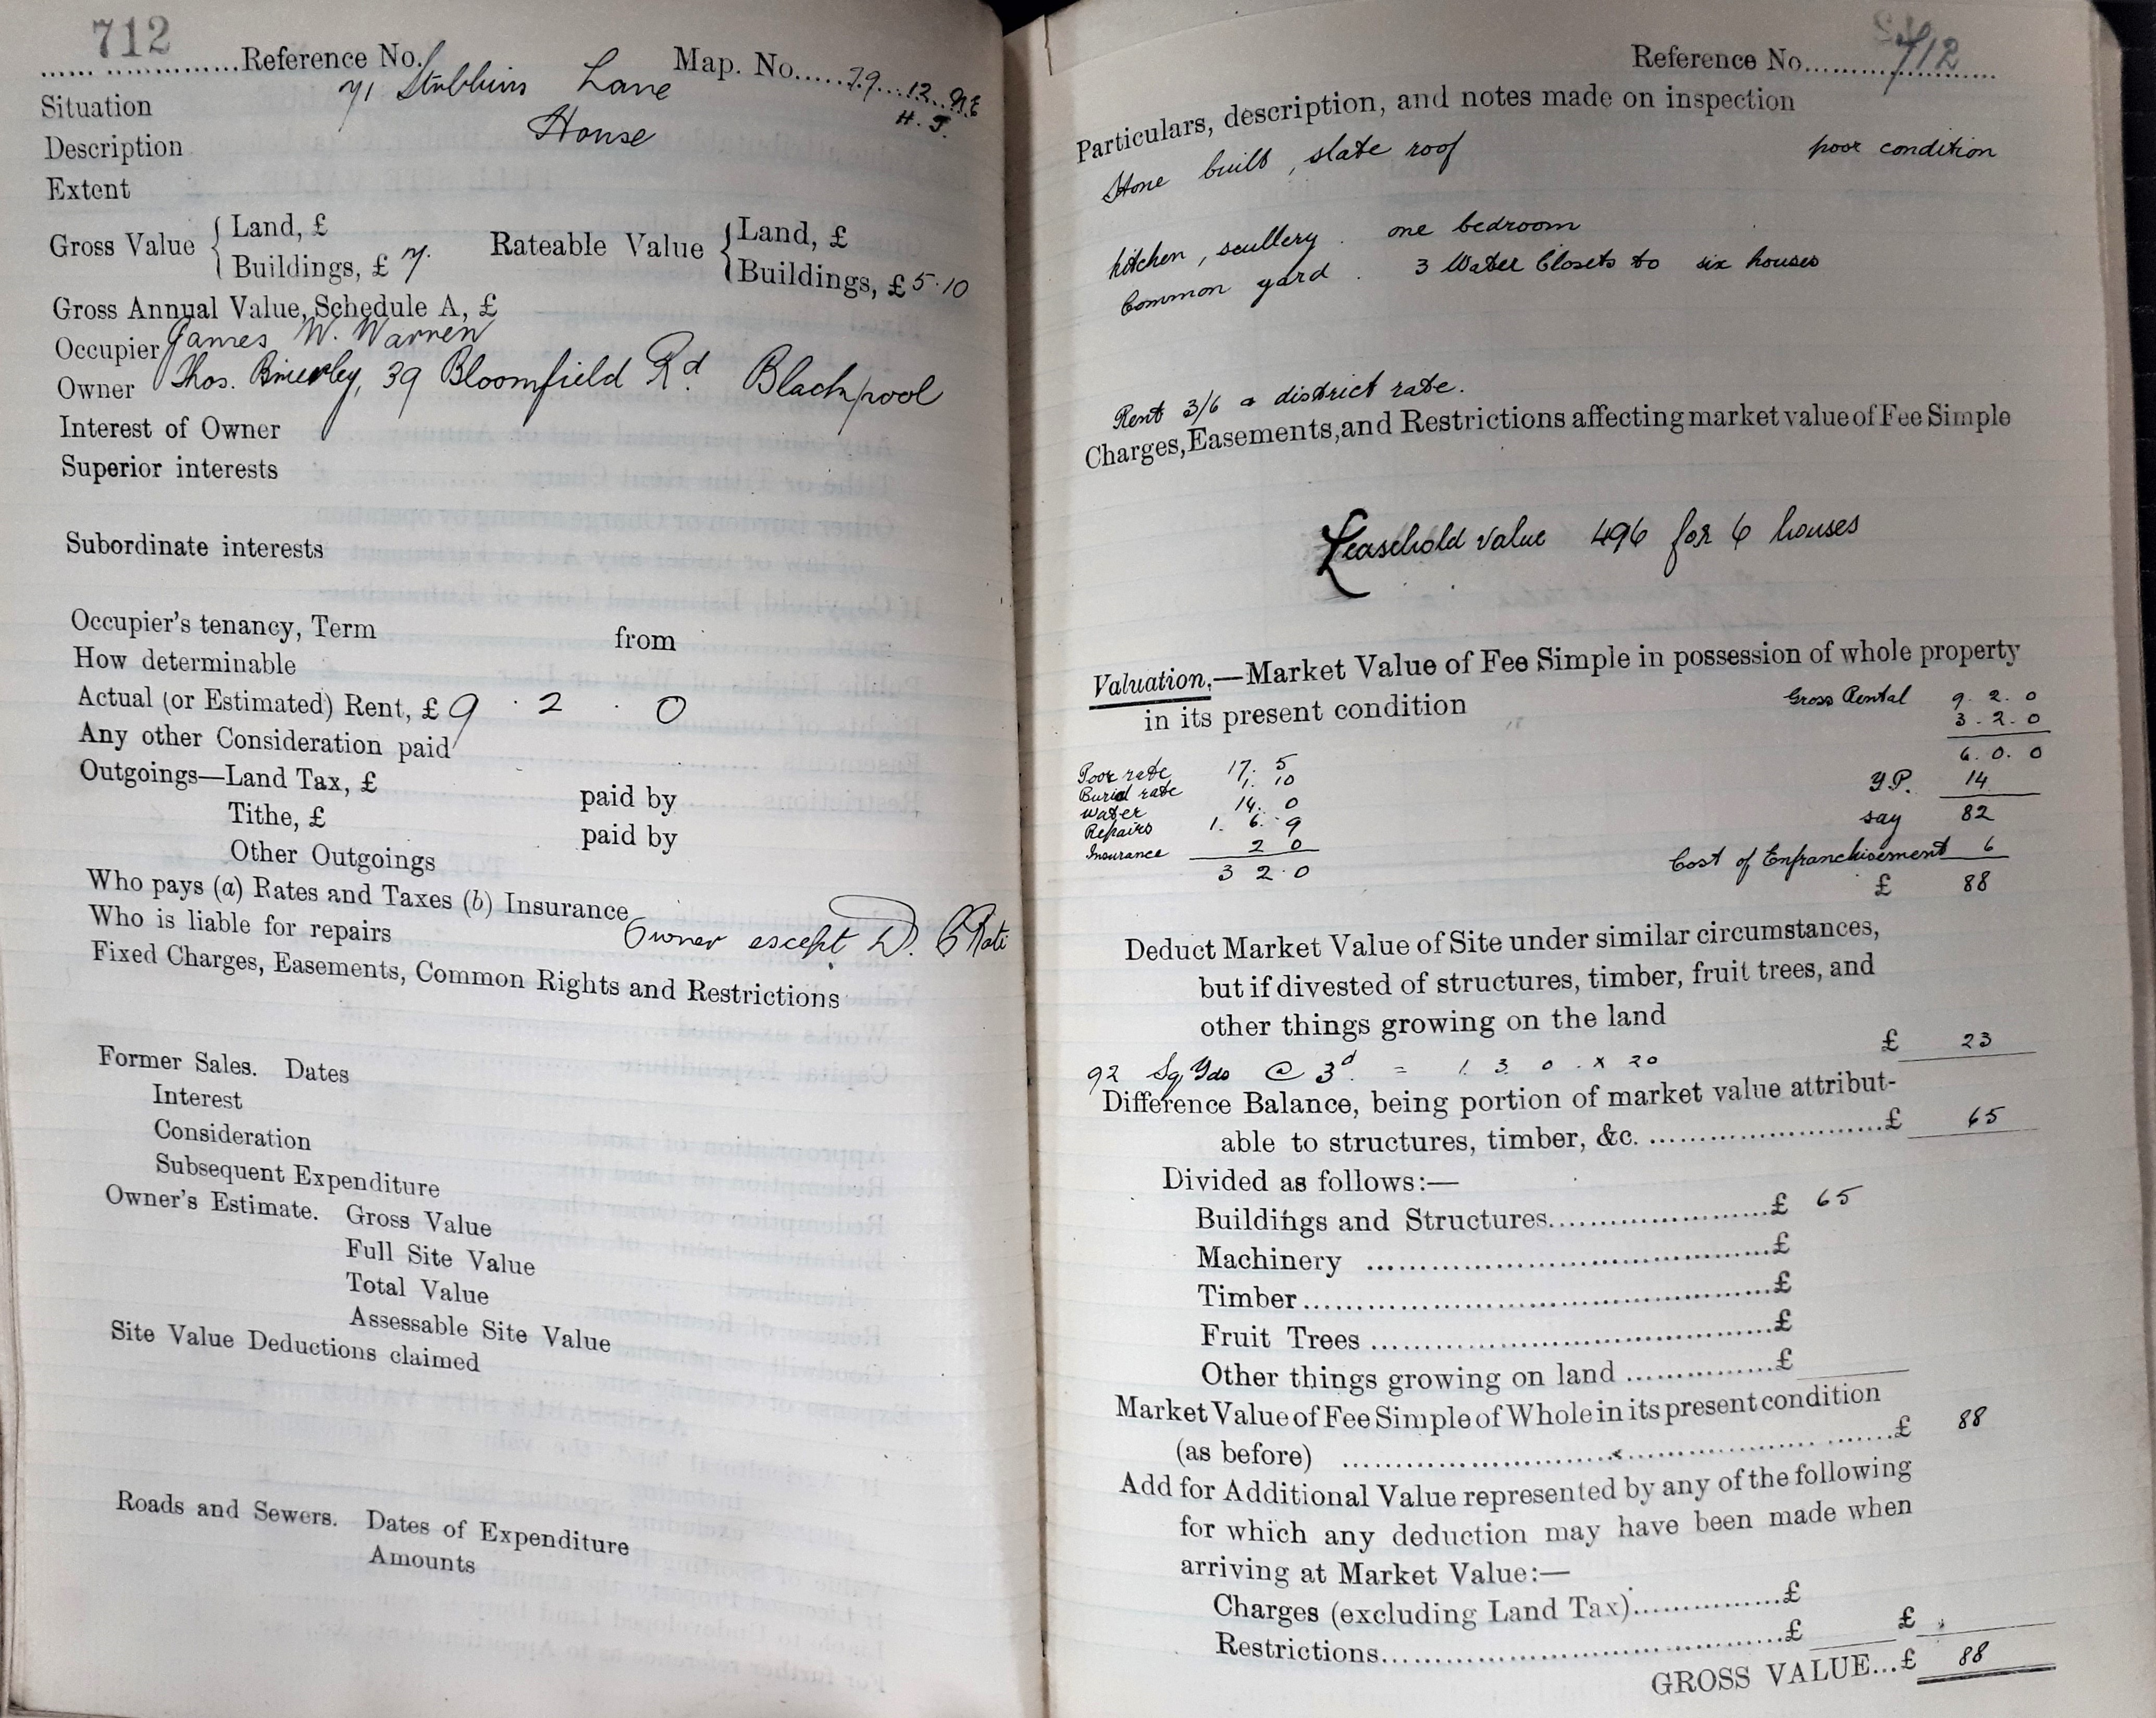 712
Reference No. Map. No. 79 12 NE
H. J.
Situation 71 Stubbins Lane
Description House
Extent
Gross Value { Land, £ Rateable Value { Land, £
Buildings, £ 7. Buildings, £ 5.10
Gross Annual Value, Schedule A, £
Occupier James W. Warren
Owner Thos. Brierley, 39 Bloomfield Rd. Blackpool
Interest of Owner
Superior interests
Subordinate interests
Occupier's tenancy, Term from
How determinable
Actual (or Estimated) Rent, £ 9 . 2 . 0
Any other Consideration paid
Outgoings—Land Tax, £ paid by
Tithe, £ paid by
Other Outgoings
Who pays (a) Rates and Taxes (b) Insurance
Who is liable for repairs Owner except D. Rate
Fixed Charges, Easements, Common Rights and Restrictions
Former Sales. Dates
Interest
Consideration
Subsequent Expenditure
Owner's Estimate. Gross Value
Full Site Value
Total Value
Assessable Site Value
Site Value Deductions claimed
Roads and Sewers. Dates of Expenditure
Amounts
Reference No. 712
Particulars, description, and notes made on inspection
Stone built, slate roof poor condition
kitchen, scullery. one bedroom
Common yard. 3 Water Closets to six houses
Rent 3/6 & district rate.
Charges, Easements, and Restrictions affecting market value of Fee Simple
Leasehold value 496 for 6 houses
Valuation.—Market Value of Fee Simple in possession of whole property
in its present condition Gross Rental 9. 2. 0
3. 2. 0
6. 0. 0
Poor rate 17. 5
Burial rate 1. 10
Water 14. 0
Repairs 1. 6. 9
Insurance 2 0
3 2. 0
Y.P. 14
say 82
Cost of Enfranchisement 6
£ 88
Deduct Market Value of Site under similar circumstances,
but if divested of structures, timber, fruit trees, and
other things growing on the land £ 23
92 Sq Yds @ 3d. = 1. 3. 0. x 20
Difference Balance, being portion of market value attribut-
able to structures, timber, &c. £ 65
Divided as follows:—
Buildings and Structures £ 65
Machinery £
Timber £
Fruit Trees £
Other things growing on land £
Market Value of Fee Simple of Whole in its present condition
(as before) £ 88
Add for Additional Value represented by any of the following
for which any deduction may have been made when
arriving at Market Value:—
Charges (excluding Land Tax) £
Restrictions £ £
GROSS VALUE... £ 88